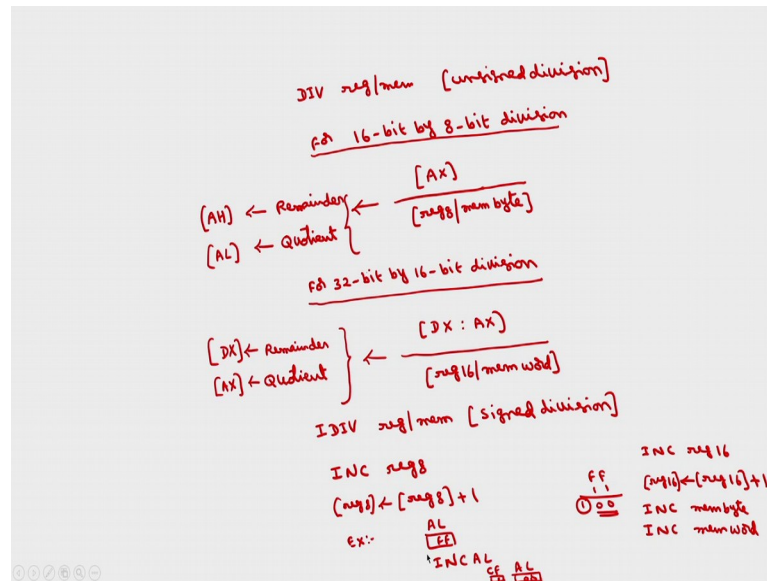 DIV reg/mem [unsigned division]
For 16-bit by 8-bit division
[AX]
[AH] ← Remainder
← [reg8/mem byte]
[AL] ← Quotient
For 32-bit by 16-bit division
[DX : AX]
[DX] ← Remainder
←
[AX] ← Quotient
[reg16/mem word]
IDIV reg/mem [signed division]
INC reg8
[reg8] ← [reg8] + 1
Ex:- AL
FF
INC AL
CF AL
INC reg16
[reg16] ← [reg16] + 1
INC membyte
INC memword
FF
11
100